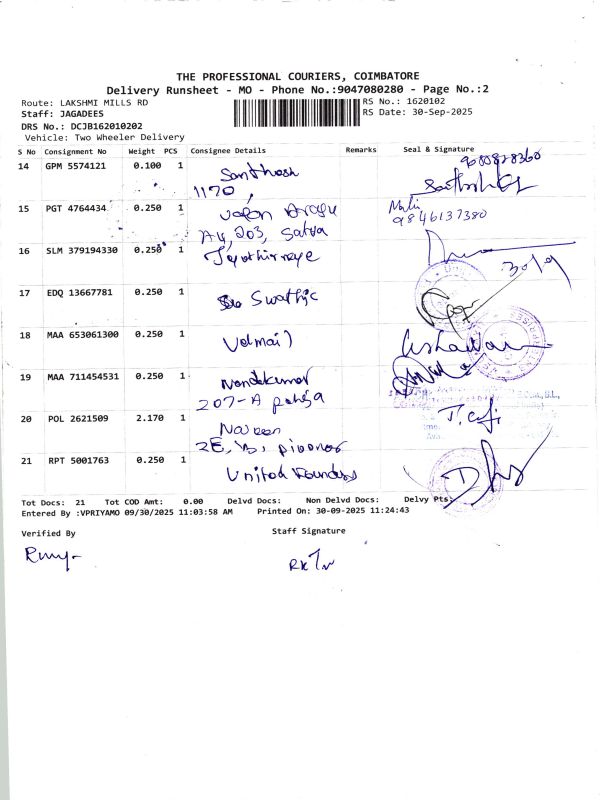 THE PROFESSIONAL COURIERS, COIMBATORE
Delivery Runsheet - MO - Phone No.:9047080280 - Page No.:2
Route: LAKSHMI MILLS RD
RS No.: 1620102
Staff: JAGADEES
RS Date: 30-Sep-2025
DRS No.: DCJB162010202
Vehicle: Two Wheeler Delivery
S No Consignment No Weight PCS Consignee Details Remarks Seal & Signature
14 GPM 5574121 0.100 1 Santhosh
1170,
15 PGT 4764434 0.250 1
9846137380
A4, 203, Satya
16 SLM 379194330 0.250 1
30/9
17 EDQ 13667781 0.250 1 Swathic
18 MAA 653061300 0.250 1 Velmail
19 MAA 711454531 0.250 1 Nandakumar
207-A
20 POL 2621509 2.170 1 Naveen
2E,
21 RPT 5001763 0.250 1 United Founders
Tot Docs: 21 Tot COD Amt: 0.00 Delvd Docs: Non Delvd Docs: Delvy Pts:
Entered By :VPRIYAMO 09/30/2025 11:03:58 AM Printed On: 30-09-2025 11:24:43
Verified By Staff Signature